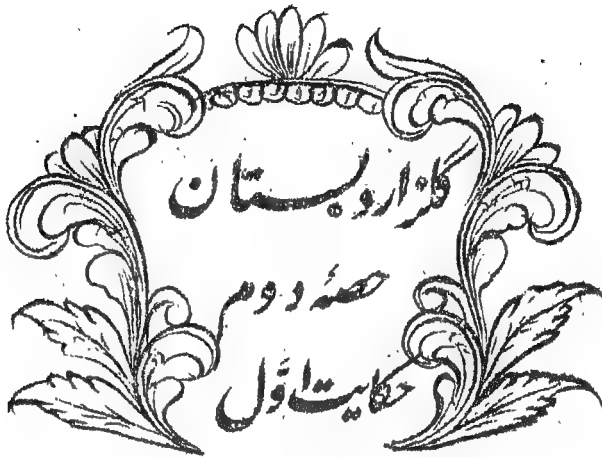 گلزار و بستان
حصۂ دوم
حکایت اوّل